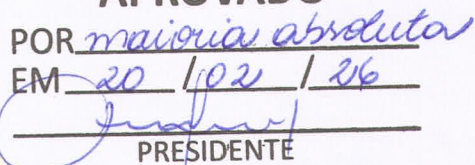 APROVADO
POR maioria absoluta
EM 20 / 02 / 26
PRESIDENTE